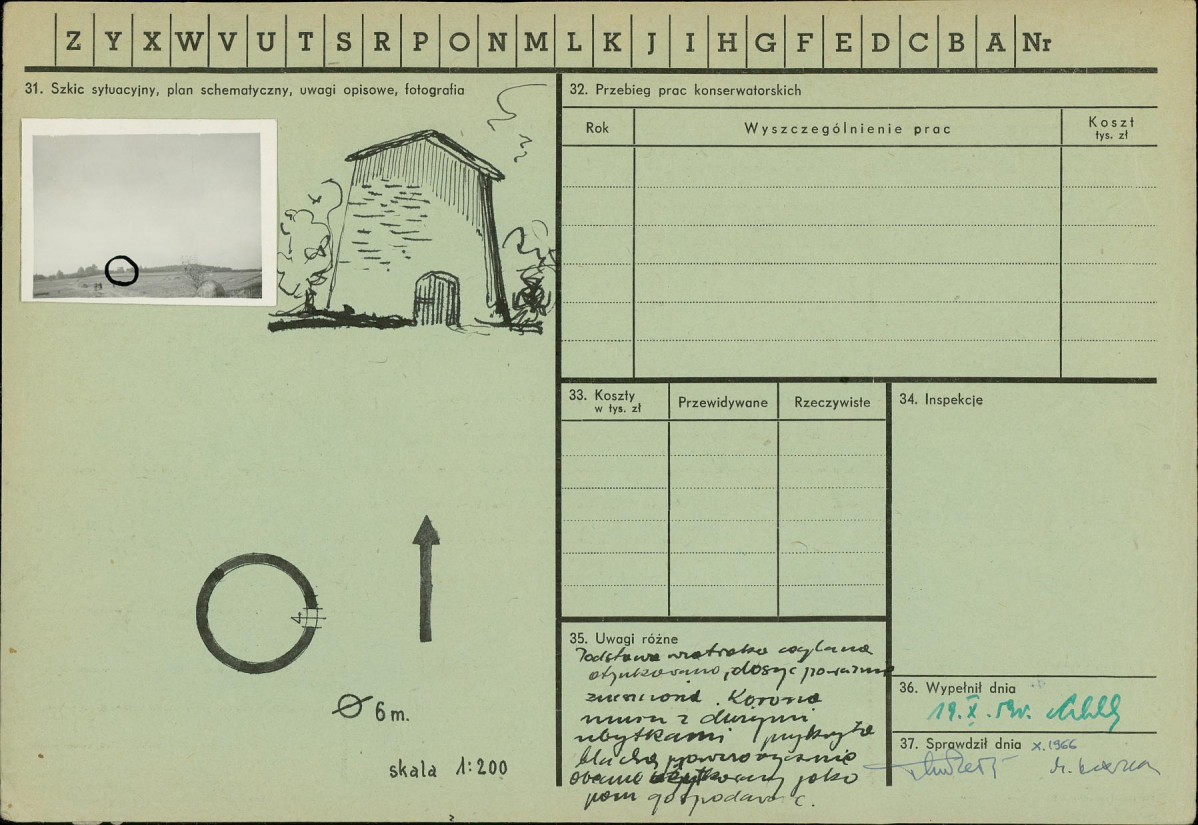 Z Y X W V U T S R P O N M L K J I H G F E D C B A Nr
31. Szkic sytuacyjny, plan schematyczny, uwagi opisowe, fotografia
Ø 6 m.
skala 1:200
32. Przebieg prac konserwatorskich
Rok
Wyszczególnienie prac
Koszt
tys. zł
33. Koszty
w tys. zł
Przewidywane
Rzeczywiste
34. Inspekcje
35. Uwagi różne
Podstawa wiatraka ceglana
otynkowana, dosyć poważnie
zniszczona. Korona
muru z dużymi
ubytkami przykryta
blachą prowizorycznie
obecnie użytkowany jako
pom gospodarcz.
36. Wypełnił dnia
19.X.59r.
37. Sprawdził dnia X.1966